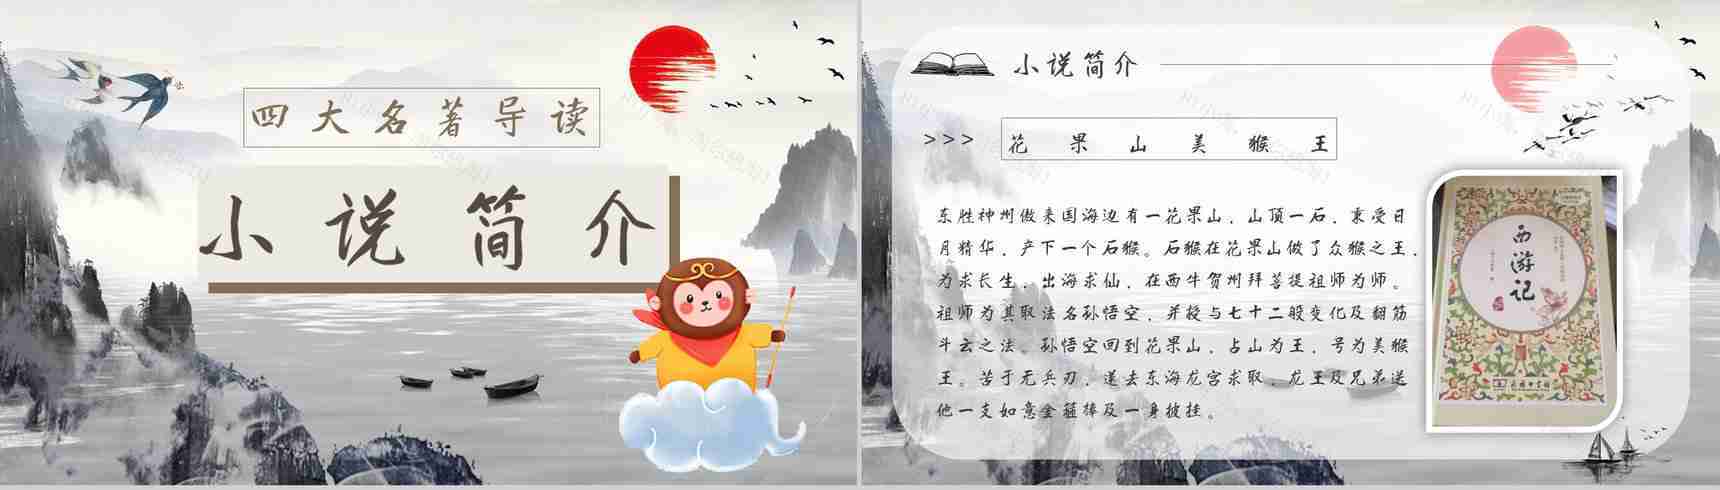 四大名著导读
小说简介
小说简介
>>>
花果山美猴王
东胜神州傲来国海边有一花果山，山顶一石，秉受日
月精华，产下一个石猴。石猴在花果山做了众猴之王，
为求长生，出海求仙，在西牛贺州拜菩提祖师为师。
祖师为其取法名孙悟空，并授与七十二般变化及翻筋
斗云之法。孙悟空回到花果山，占山为王，号为美猴
王。苦于无兵刃，遂去东海龙宫求取，龙王及兄弟送
他一支如意金箍棒及一身披挂。
西游记